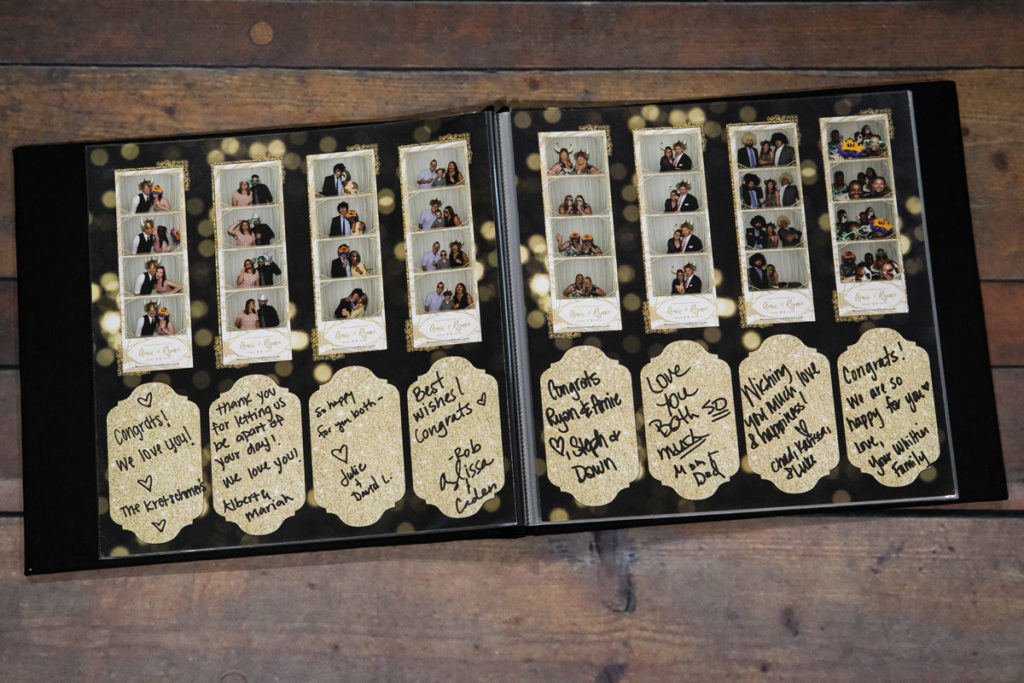 Amie & Ryan
Amie & Ryan
Amie & Ryan
Amie & Ryan
Amie & Ryan
Amie & Ryan
Amie & Ryan
Amie & Ryan
Congrats!
We love you!
The Kretschmer's
thank you
for letting us
be apart of
your day!
We love you!
Alberta
Mariah
So happy
for you both -
Julie
&
David L.
Best
wishes!
Congrats
-Rob
Alyssa
Caden
Congrats
Ryan & Amie
, Steph &
Dawn
Love
You
Both SO
much
Mom &
Dad
Wishing
you much love
& happiness!
Congrats!
We are so
happy for you
love,
your
Family